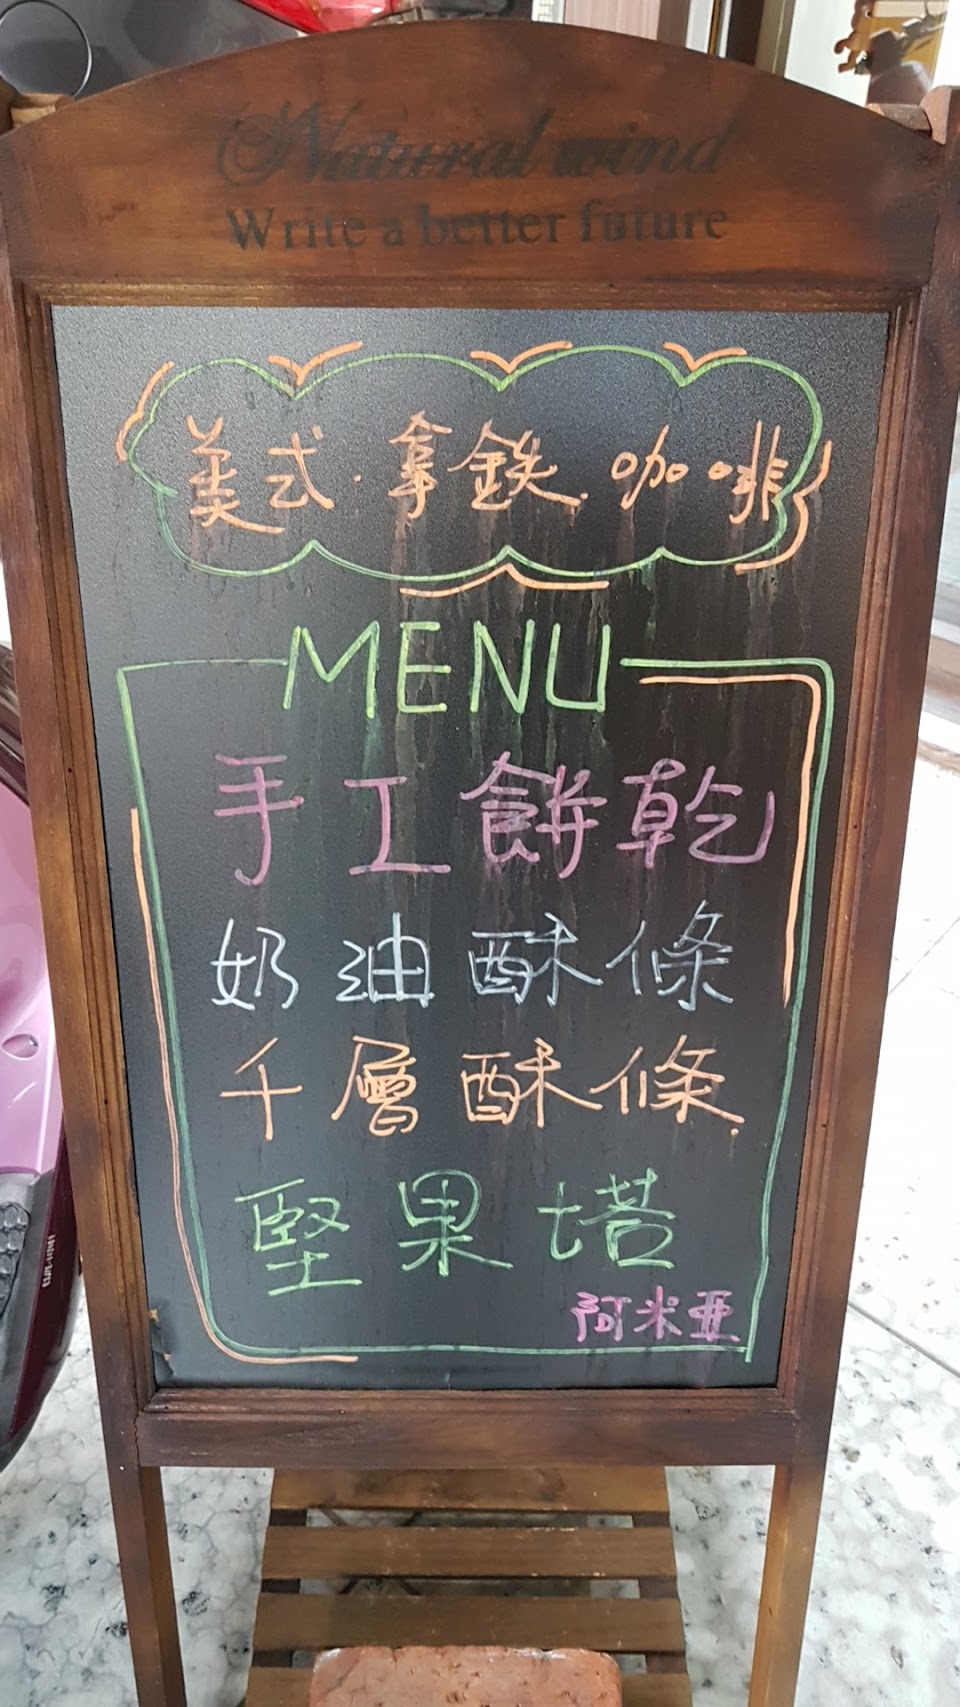 Natural wind
Write a better future
美式·拿鐵.咖啡
MENU
手工餅乾
奶油酥條
千層酥條
堅果塔
阿米亞